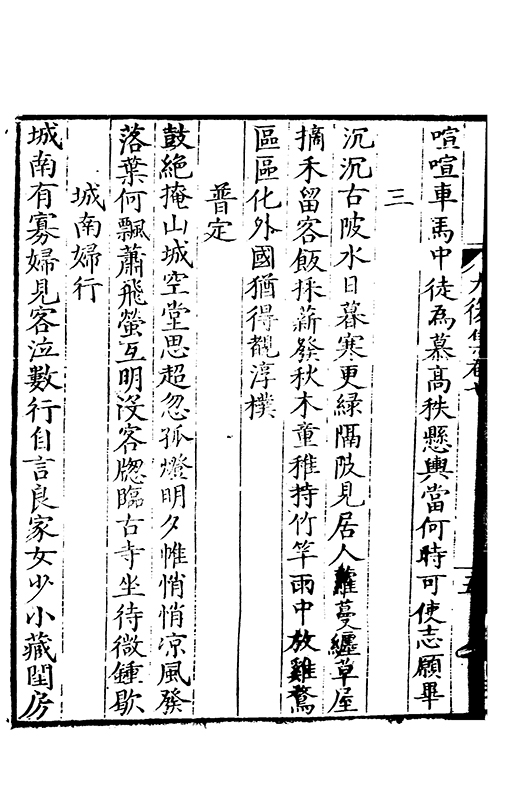 喧喧車馬中徒為慕高秩懸輿當何時可使志願畢
三
沉沉古陂水日暮寒更綠隔陂見居人蘿蔓纏草屋
摘禾留客飯採薪發秋木童稚持竹竿雨中放雞鶩
區區化外國猶得覩淳樸
普定
鼓絶掩山城空堂思超忽孤燈明夕帷悄悄凉風發
落葉何飄蕭飛螢互明沒客牎臨古寺坐待微鍾歇
城南婦行
城南有寡婦見客泣數行自言良家女少小藏閨房